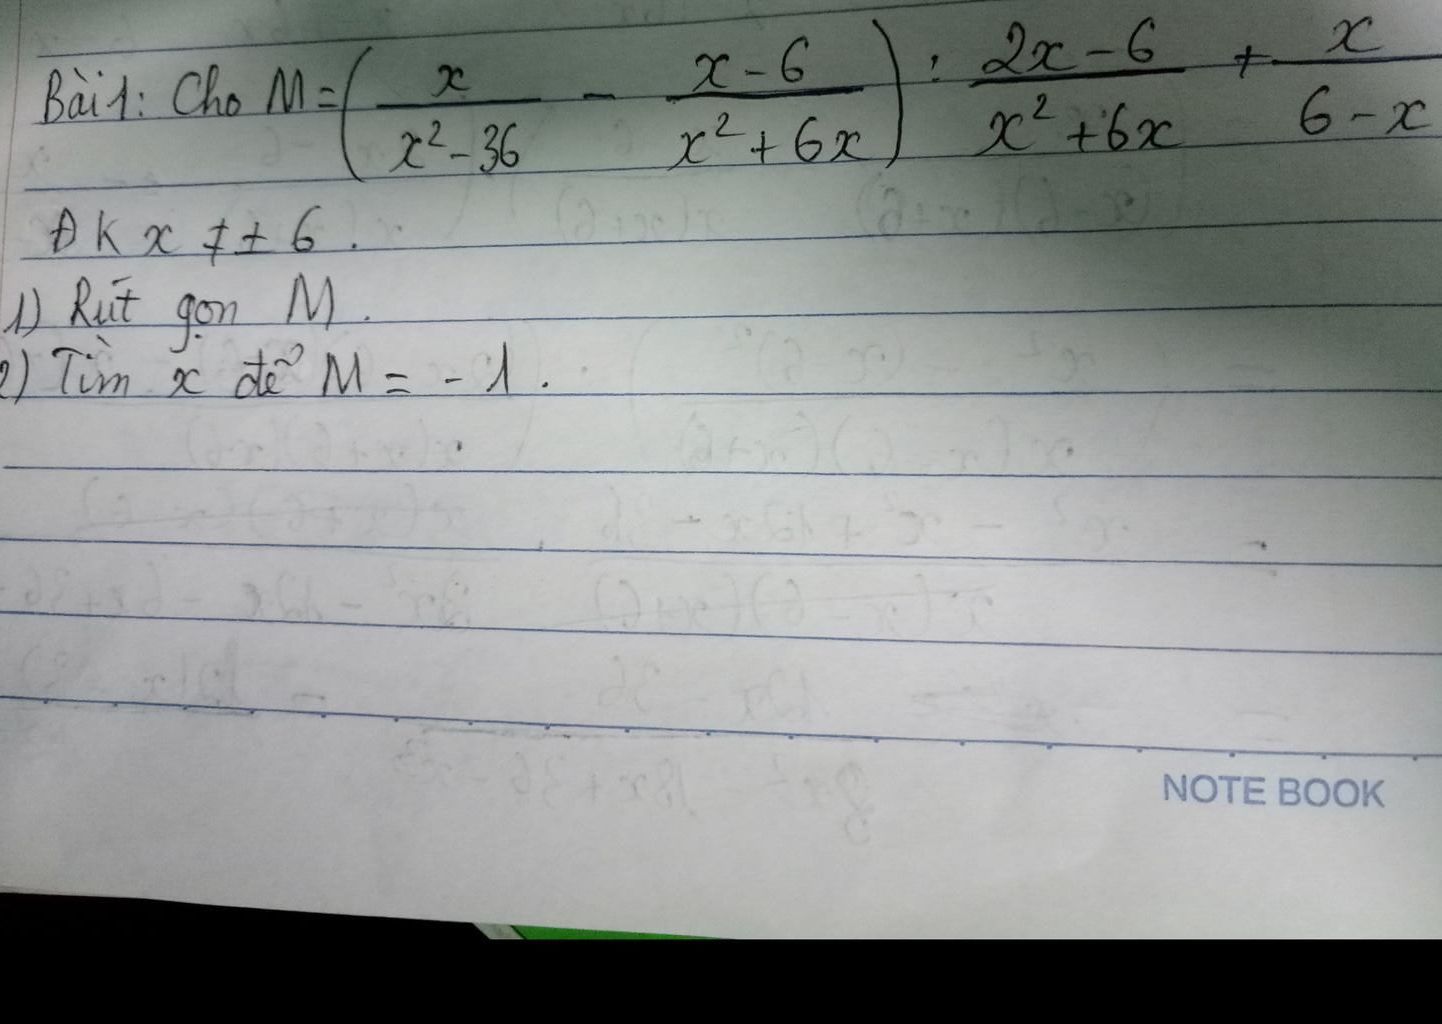 Bài 1: Cho M = ( x / (x² - 36) - (x - 6) / (x² + 6x) ) : (2x - 6) / (x² + 6x) + x / (6 - x)
ĐK x ≠ ± 6.
1) Rút gọn M.
2) Tìm x để M = - 1.
NOTE BOOK